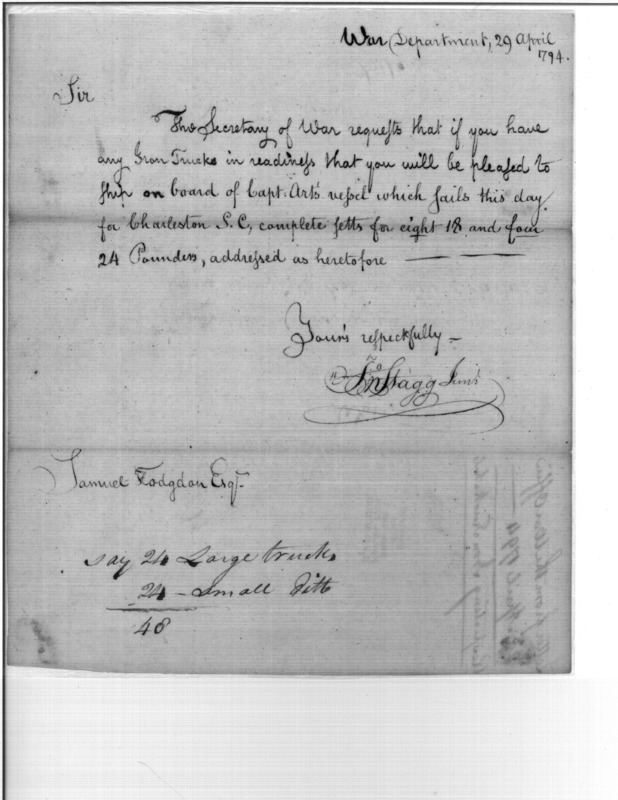 War Department, 29 April
1794.
Sir
The Secretary of War requests that if you have
any Iron Trucks in readiness that you will be pleased to
ship on board of Capt. Art's vessel which sails this day
for Charleston S.C, complete setts for eight 18 and four
24 Pounders, addressed as heretofore
Your's respectfully
Jno Stagg Junr
Samuel Hodgdon Esqr.
say 24 Large trucks
24 - Small Ditto
48